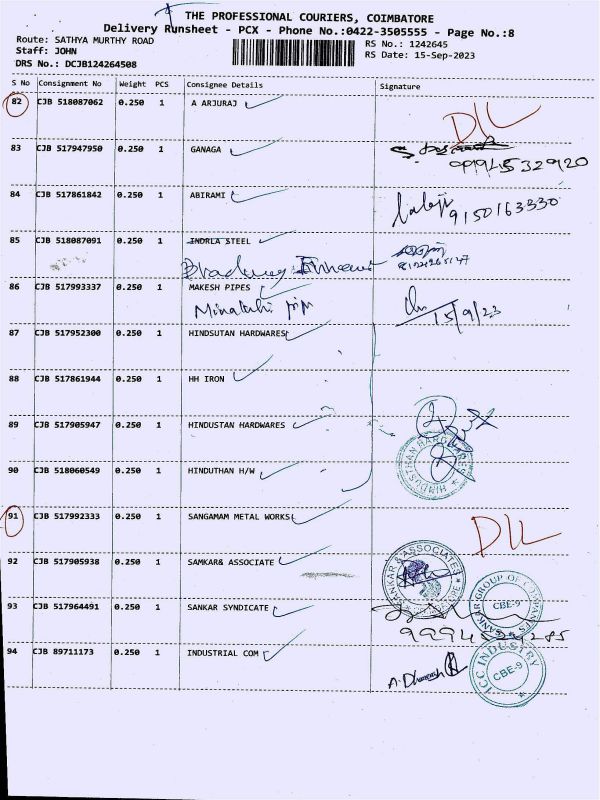 THE PROFESSIONAL COURIERS, COIMBATORE
Delivery Runsheet - PCX - Phone No.:0422-3505555 - Page No.:8
Route: SATHYA MURTHY ROAD RS No.: 1242645
Staff: JOHN RS Date: 15-Sep-2023
DRS No.: DCJB124264508
S No Consignment No Weight PCS Consignee Details Signature
82 CJB 518087062 0.250 1 A ARJURAJ
83 CJB 517947950 0.250 1 GANAGA
84 CJB 517861842 0.250 1 ABIRAMI
9150163330
85 CJB 518087091 0.250 1 INDRLA STEEL
86 CJB 517993337 0.250 1 MAKESH PIPES
15/9/23
87 CJB 517952300 0.250 1 HINDSUTAN HARDWARES
88 CJB 517861944 0.250 1 HH IRON
89 CJB 517905947 0.250 1 HINDUSTAN HARDWARES
90 CJB 518060549 0.250 1 HINDUTHAN H/W
HINDUSTHAN HARDWARES
91 CJB 517992333 0.250 1 SANGAMAM METAL WORKS
92 CJB 517905938 0.250 1 SAMKAR& ASSOCIATE
SANKAR & ASSOCIATES
93 CJB 517964491 0.250 1 SANKAR SYNDICATE
SANKAR GROUP OF COMPANIES
CBE-9
94 CJB 89711173 0.250 1 INDUSTRIAL COM
ICC INDUSTRY
CBE-9